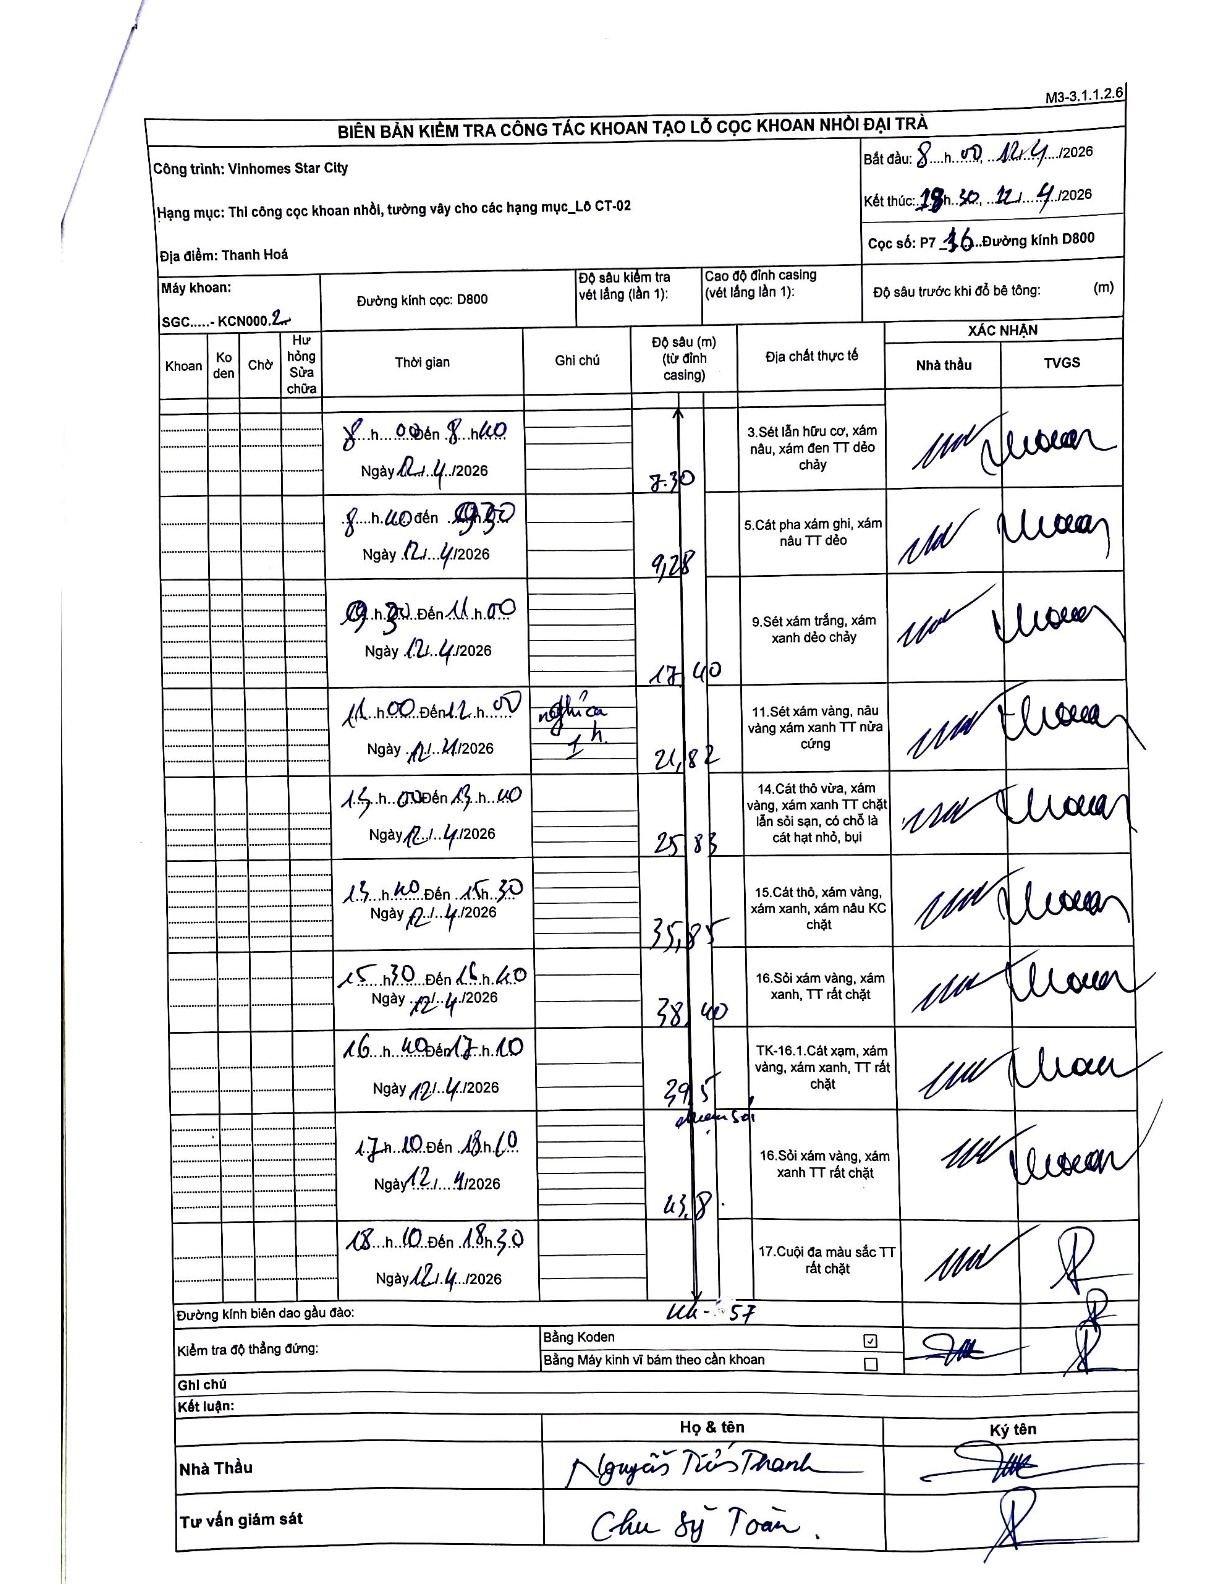 M3-3.1.1.2.6
BIÊN BẢN KIỂM TRA CÔNG TÁC KHOAN TẠO LỖ CỌC KHOAN NHỒI ĐẠI TRÀ
Công trình: Vinhomes Star City
Bắt đầu: 8....h..00, ..12/.4.../2026
Hạng mục: Thi công cọc khoan nhồi, tường vây cho các hạng mục_Lô CT-02
Kết thúc: 18h..30, ..12/....4/2026
Địa điểm: Thanh Hoá
Cọc số: P7_16..Đường kính D800
Máy khoan:
SGC.....- KCN000.2
Đường kính cọc: D800
Độ sâu kiểm tra
vét lắng (lần 1):
Cao độ đỉnh casing
(vét lắng lần 1):
Độ sâu trước khi đổ bê tông: (m)
Khoan
Ko
den
Chờ
Hư
hỏng
Sửa
chữa
Thời gian
Ghi chú
Độ sâu (m)
(từ đỉnh
casing)
Địa chất thực tế
XÁC NHẬN
Nhà thầu
TVGS
8...h...00đến 8..h40
Ngày 12/.4../2026
7.30
3.Sét lẫn hữu cơ, xám
nâu, xám đen TT dẻo
chảy
8..h.40đến 09h30
Ngày 12/...4/2026
9,28
5.Cát pha xám ghi, xám
nâu TT dẻo
09h.30.Đến 11.h.00
Ngày 12/..4./2026
17,40
9.Sét xám trắng, xám
xanh dẻo chảy
11...h00.Đến12.h..00
Ngày 12/..4/2026
nghỉ ca
1 h.
21,82
11.Sét xám vàng, nâu
vàng xám xanh TT nửa
cứng
13..h..00Đến 13..h..40
Ngày12/..4./2026
25,83
14.Cát thô vừa, xám
vàng, xám xanh TT chặt
lẫn sỏi sạn, có chỗ là
cát hạt nhỏ, bụi
13..h40..Đến .15h..30
Ngày 12/..4/2026
35,85
15.Cát thô, xám vàng,
xám xanh, xám nâu KC
chặt
15...h30..Đến 16.h.40
Ngày .12/..4/2026
38,40
16.Sỏi xám vàng, xám
xanh, TT rất chặt
16...h..40Đến17.h.10
Ngày12/..4./2026
39,5
TK-16.1.Cát xạm, xám
vàng, xám xanh, TT rất
chặt
17h..10.Đến .18h.10
Ngày12./...4/2026
43,8
16.Sỏi xám vàng, xám
xanh TT rất chặt
18...h..10.Đến .18h.30
Ngày 12/.4.../2026
17.Cuội đa màu sắc TT
rất chặt
Đường kính biên dao gầu đào:
57
Kiểm tra độ thẳng đứng:
Bằng Koden ☑
Bằng Máy kinh vĩ bám theo cần khoan ☐
Ghi chú
Kết luận:
Họ & tên
Ký tên
Nhà Thầu
Nguyễn Tiến Thanh
Tư vấn giám sát
Chu Sỹ Toàn.